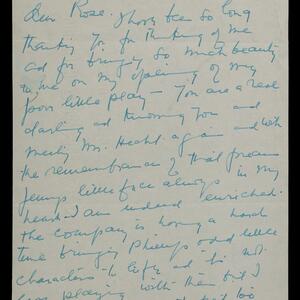 Dear Rose. I have been so long
thanking you for thinking of me
and for bringing so much beauty
to me on my opening of my
poor little play – You are a real
darling and knowing you and
meeting Mr. Hecht again and with
the remembrance of that precious
Jennys little face always in my
heart I am indeed enriched.
the company is having a hard
time bringing Philips odd little
characters to life, ad to not
playing with them but I